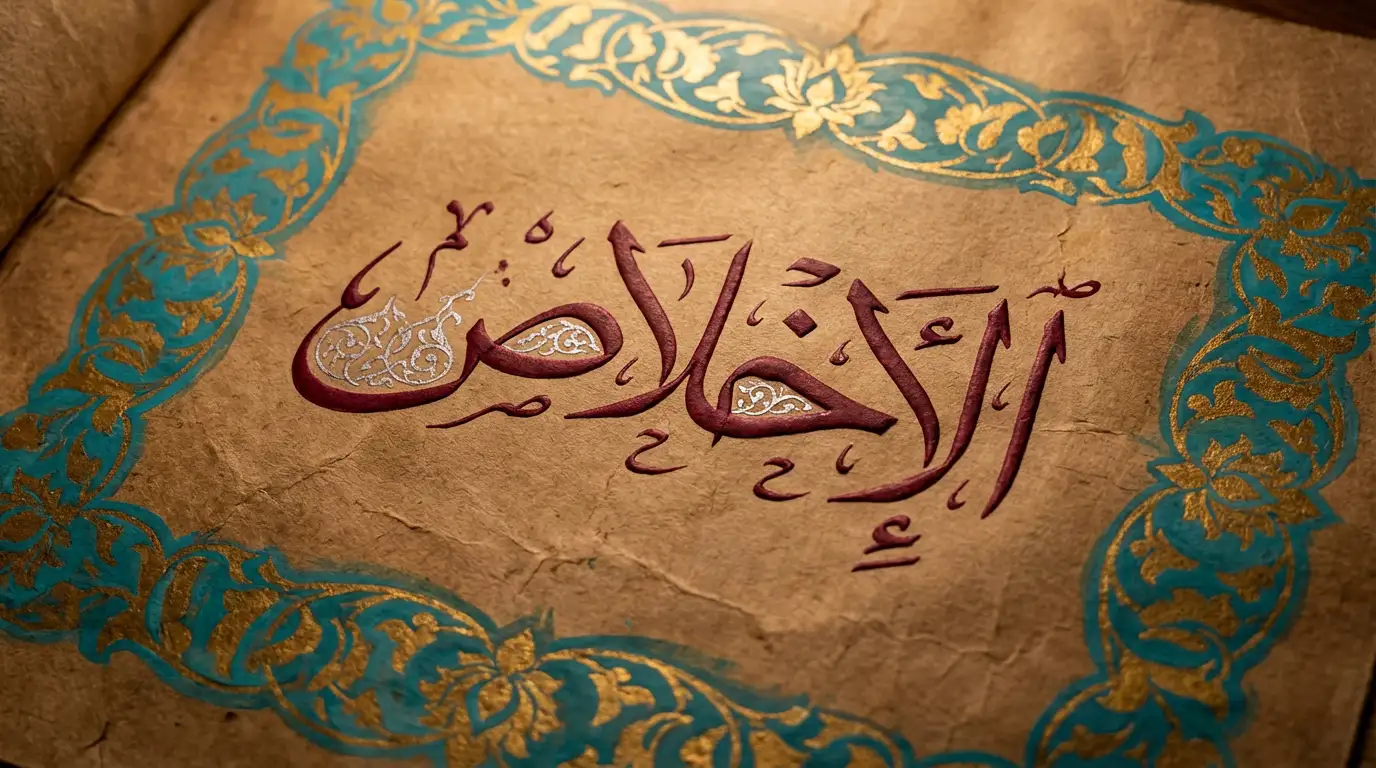 الإخلاص